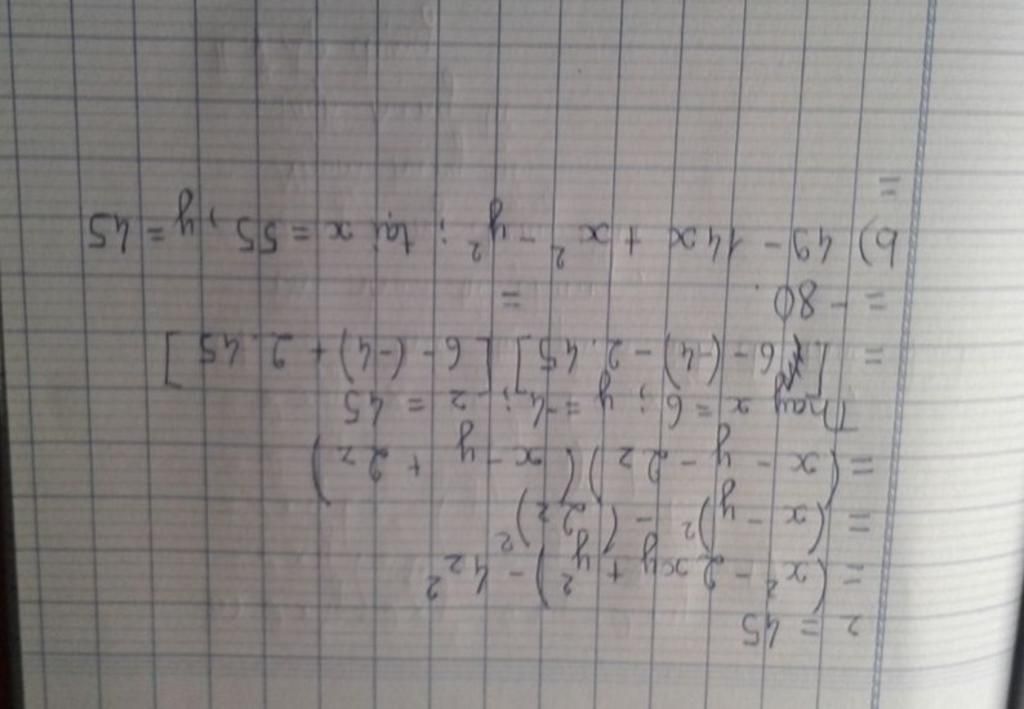 z = 45
= (x² - 2xy + y²) - 4z²
= (x - y)² - (2z)²
= (x - y - 2z)(x - y + 2z)
Thay x = 6 ; y = -4 ; z = 45
= [6 - (-4) - 2.45] [6 - (-4) + 2.45]
= - 80 . =
b) 49 - 14x + x² - y² ; tại x = 55, y = 45
=